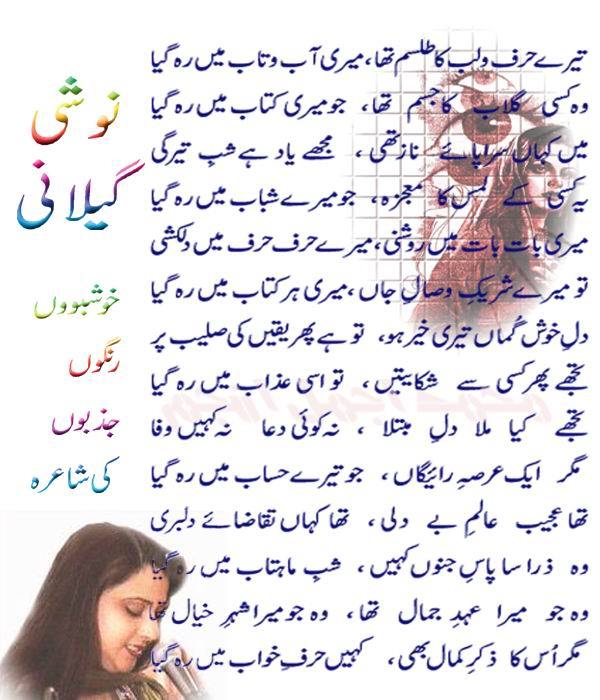 نوشی
گیلانی
خوشبووں
رنگوں
جذبوں
کی شاعرہ
تیرے حرف و لب کا طلسم تھا، میری آب و تاب میں رہ گیا
وہ کسی گلاب کا جسم تھا، جو میری کتاب میں رہ گیا
میں کہاں سراپائے ناز تھی، مجھے یاد ہے شبِ تیرگی
یہ کسی کے لمس کا معجزہ، جو میرے شباب میں رہ گیا
میری بات بات میں روشنی، میرے حرف حرف میں دلکشی
تو میرے شریکِ وصالِ جاں، میری ہر کتاب میں رہ گیا
دلِ خوش گُماں تیری خیر ہو، تو ہے پھر یقیں کی صلیب پر
تجھے پھر کسی سے شکایتیں، تو اسی عذاب میں رہ گیا
تجھے کیا ملا دلِ مبتلا، نہ کوئی دعا نہ کہیں وفا
مگر ایک عرصہِ رائیگاں، جو تیرے حساب میں رہ گیا
تھا عجیب عالمِ بے دلی، تھا کہاں تقاضائے دلبری
وہ ذرا سا پاسِ جنوں کہیں، شبِ ماہتاب میں رہ گیا
وہ جو میرا عہدِ جمال تھا، وہ جو میرا شہرِ خیال تھا
مگر اُس کا ذکرِ کمال بھی، کہیں حرفِ خواب میں رہ گیا